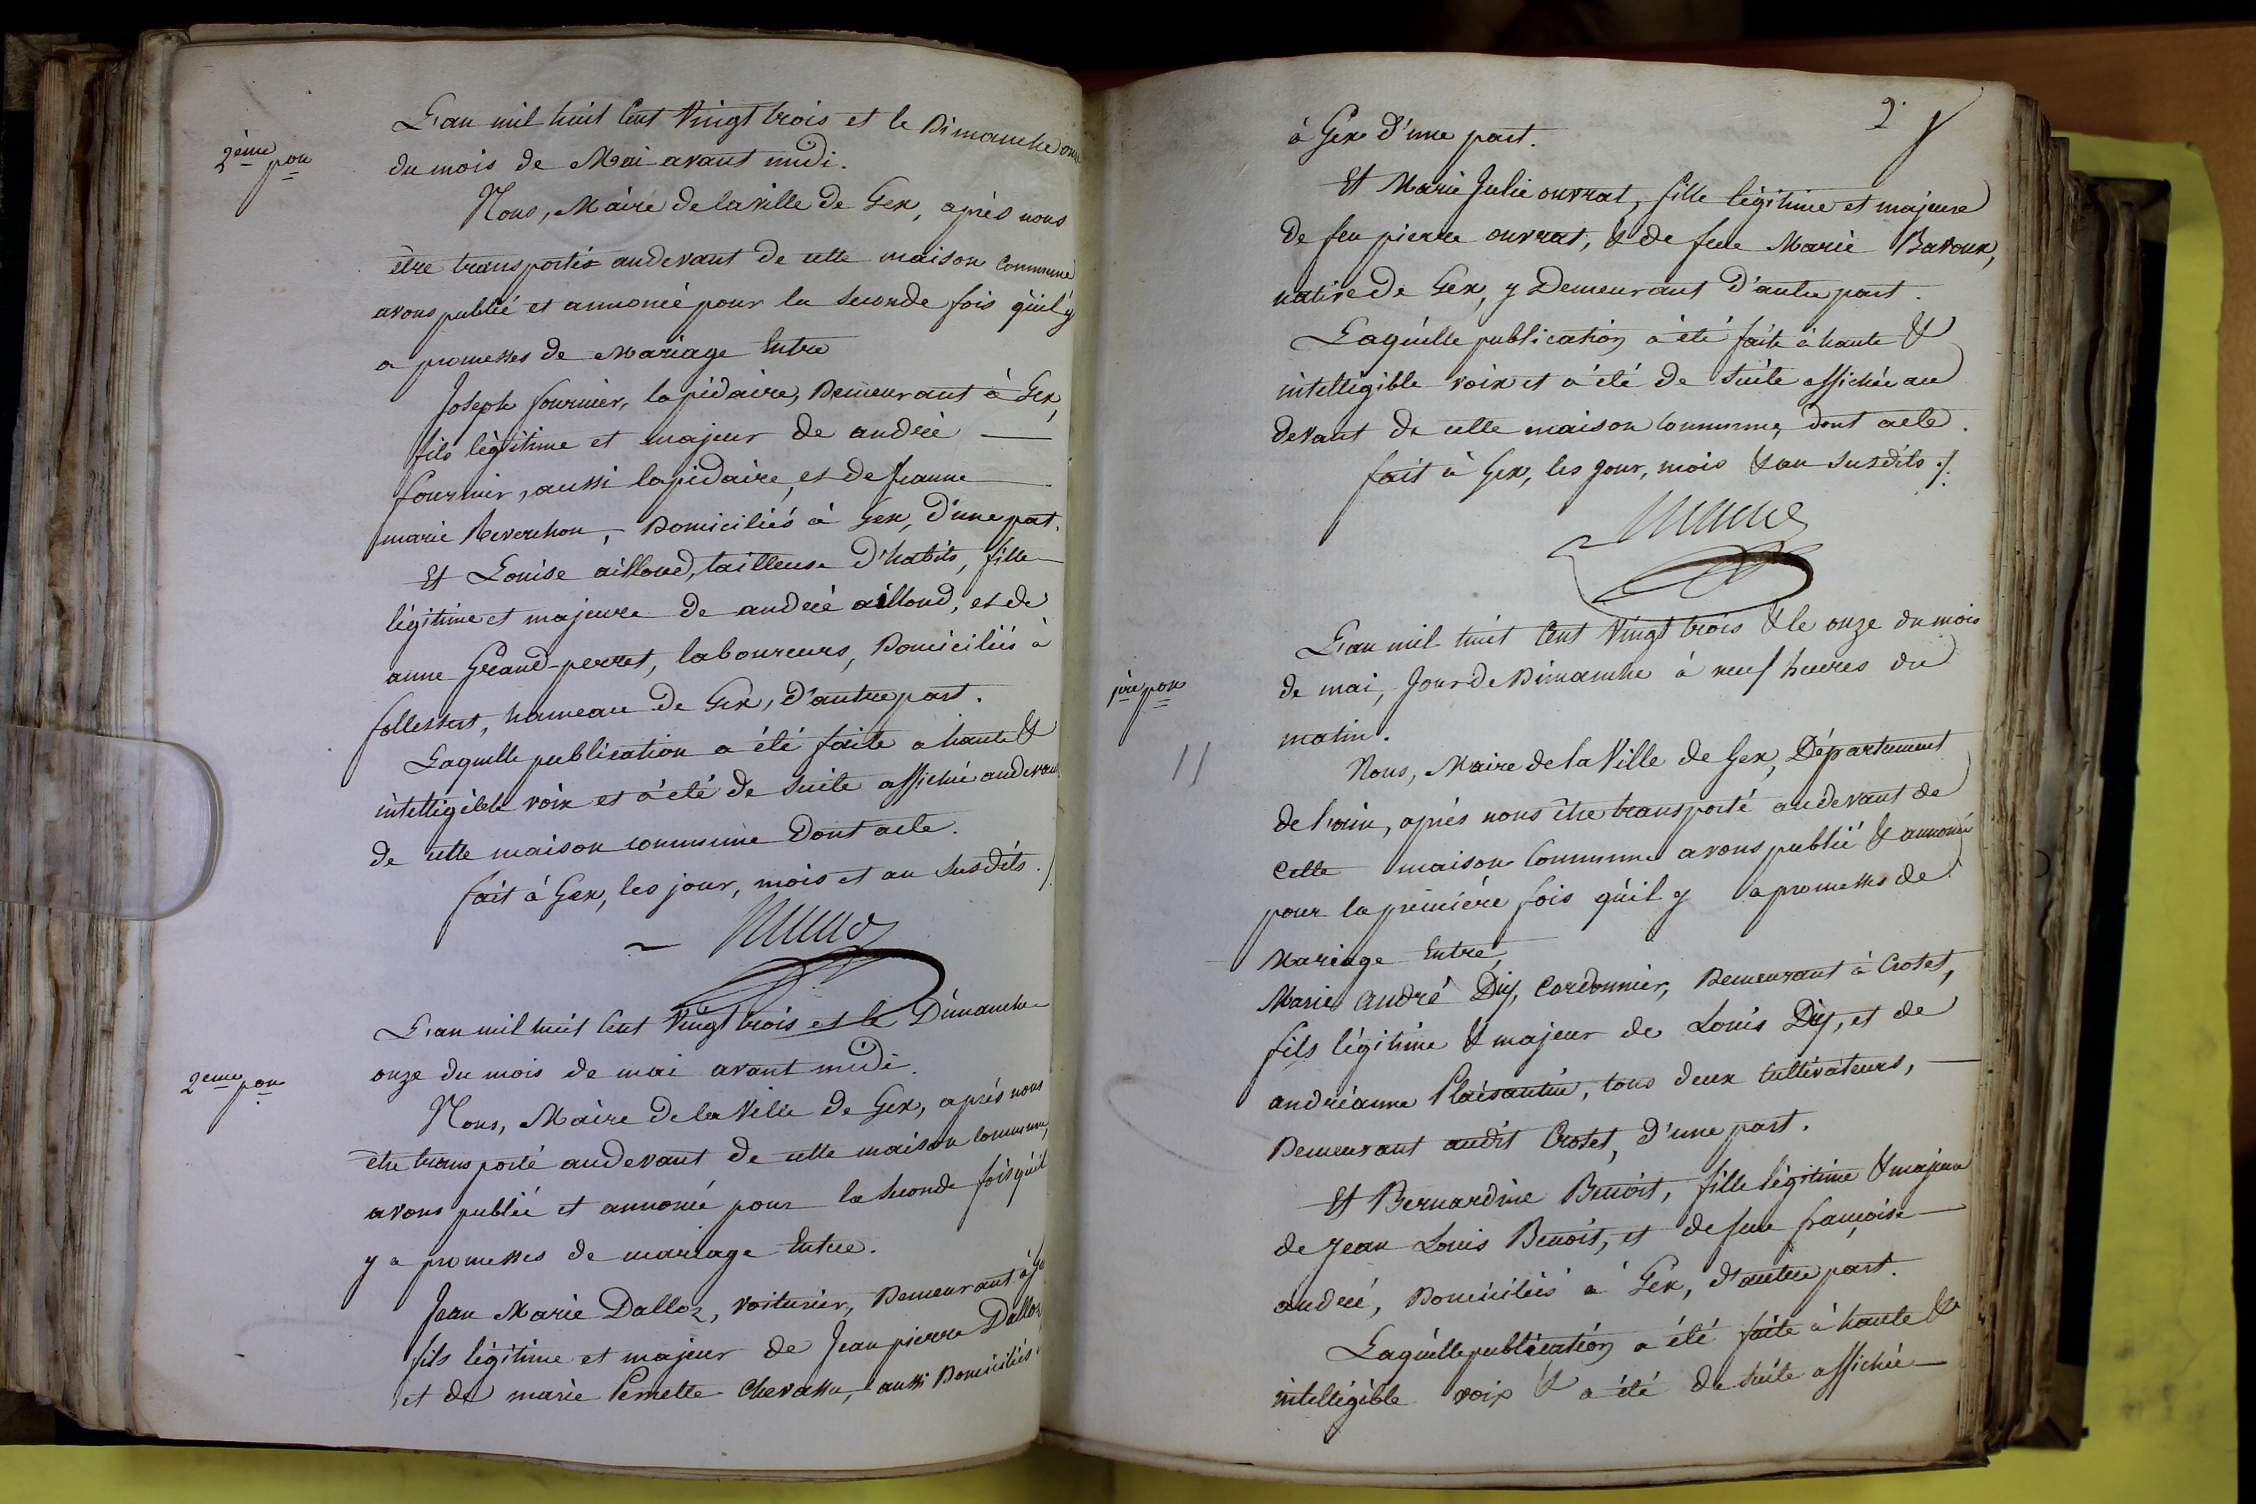 2ème pon
L'an mil huit Cent Vingt trois et le Dimanche onze
du mois de Mai avant midi.
Nous, Maire de la ville de Gex, après nous
être transporté audevant de cette maison Commune
avons publié et annoncé pour la seconde fois qu'il y
a promesses de Mariage Entre
Joseph fournier, lapidaire, Demeurant à Gex,
fils légitime et majeur de andré
fournier, aussi lapidaire, et de Jeanne
marie Reverchon, Domiciliés à Gex, d'une part.
Et Louise ailloud, tailleuse d'habits, fille
légitime et majeure de andré ailloud, et de
anne Grand-perret, laboureurs, Domiciliés à
follessert, hameau de Gex, d'autre part.
Laquelle publication a été faite a haute &
intelligible voix et a été de suite affiché audevant
de cette maison commune Dont acte.
fait à Gex, les jour, mois et an susdits ./.
2eme pon
L'an mil huit Cent Vingt trois et le Dimanche
onze du mois de mai avant midi.
Nous, Maire de la Ville de Gex, après nous
être transporté audevant de cette maison commune,
avons publié et annoncé pour la seconde fois qu'il
y a promesses de mariage Entre.
Jean Marie Dalloz, voiturier, Demeurant à Gex
fils légitime et majeur de Jean pierre Dalloz
et de marie Pernette Chevassu, aussi Domiciliés
2.
à Gex d'une part.
Et Marie Julie ouvrat, fille légitime et majeure
de feu pierre ouvrat, & de feue Marie Baroux,
native de Gex, y Demeurant d'autre part.
Laquelle publication a été faite à haute &
intelligible voix et a été de suite affichée au
devant de cette maison commune, dont acte.
fait à Gex, les jour, mois & an susdits ./.
1ère pon
11
L'an mil huit Cent Vingt trois & le onze du mois
de mai, Jour de Dimanche à neuf heures du
matin.
Nous, Maire de la Ville de Gex, Département
de l'ain, après nous être transporté audevant de
Cette maison Commune avons publié & annoncé
pour la première fois qu'il y a promesses de
Mariage Entre
Marie André Diy, Cordonnier, Demeurant à Crozet,
fils légitime & majeur de Louis Diy, et de
andréanne Plaisantin, tous deux Cultivateurs,
Demeurant audit Crozet, d'une part.
Et Bernardine Benoit, fille légitime & majeure
de Jean Louis Benoit, et de feue françoise
andré, Domiciliés à Gex, d'autre part.
Laquelle publication a été faite à haute &
intelligible voix & a été de suite affichée